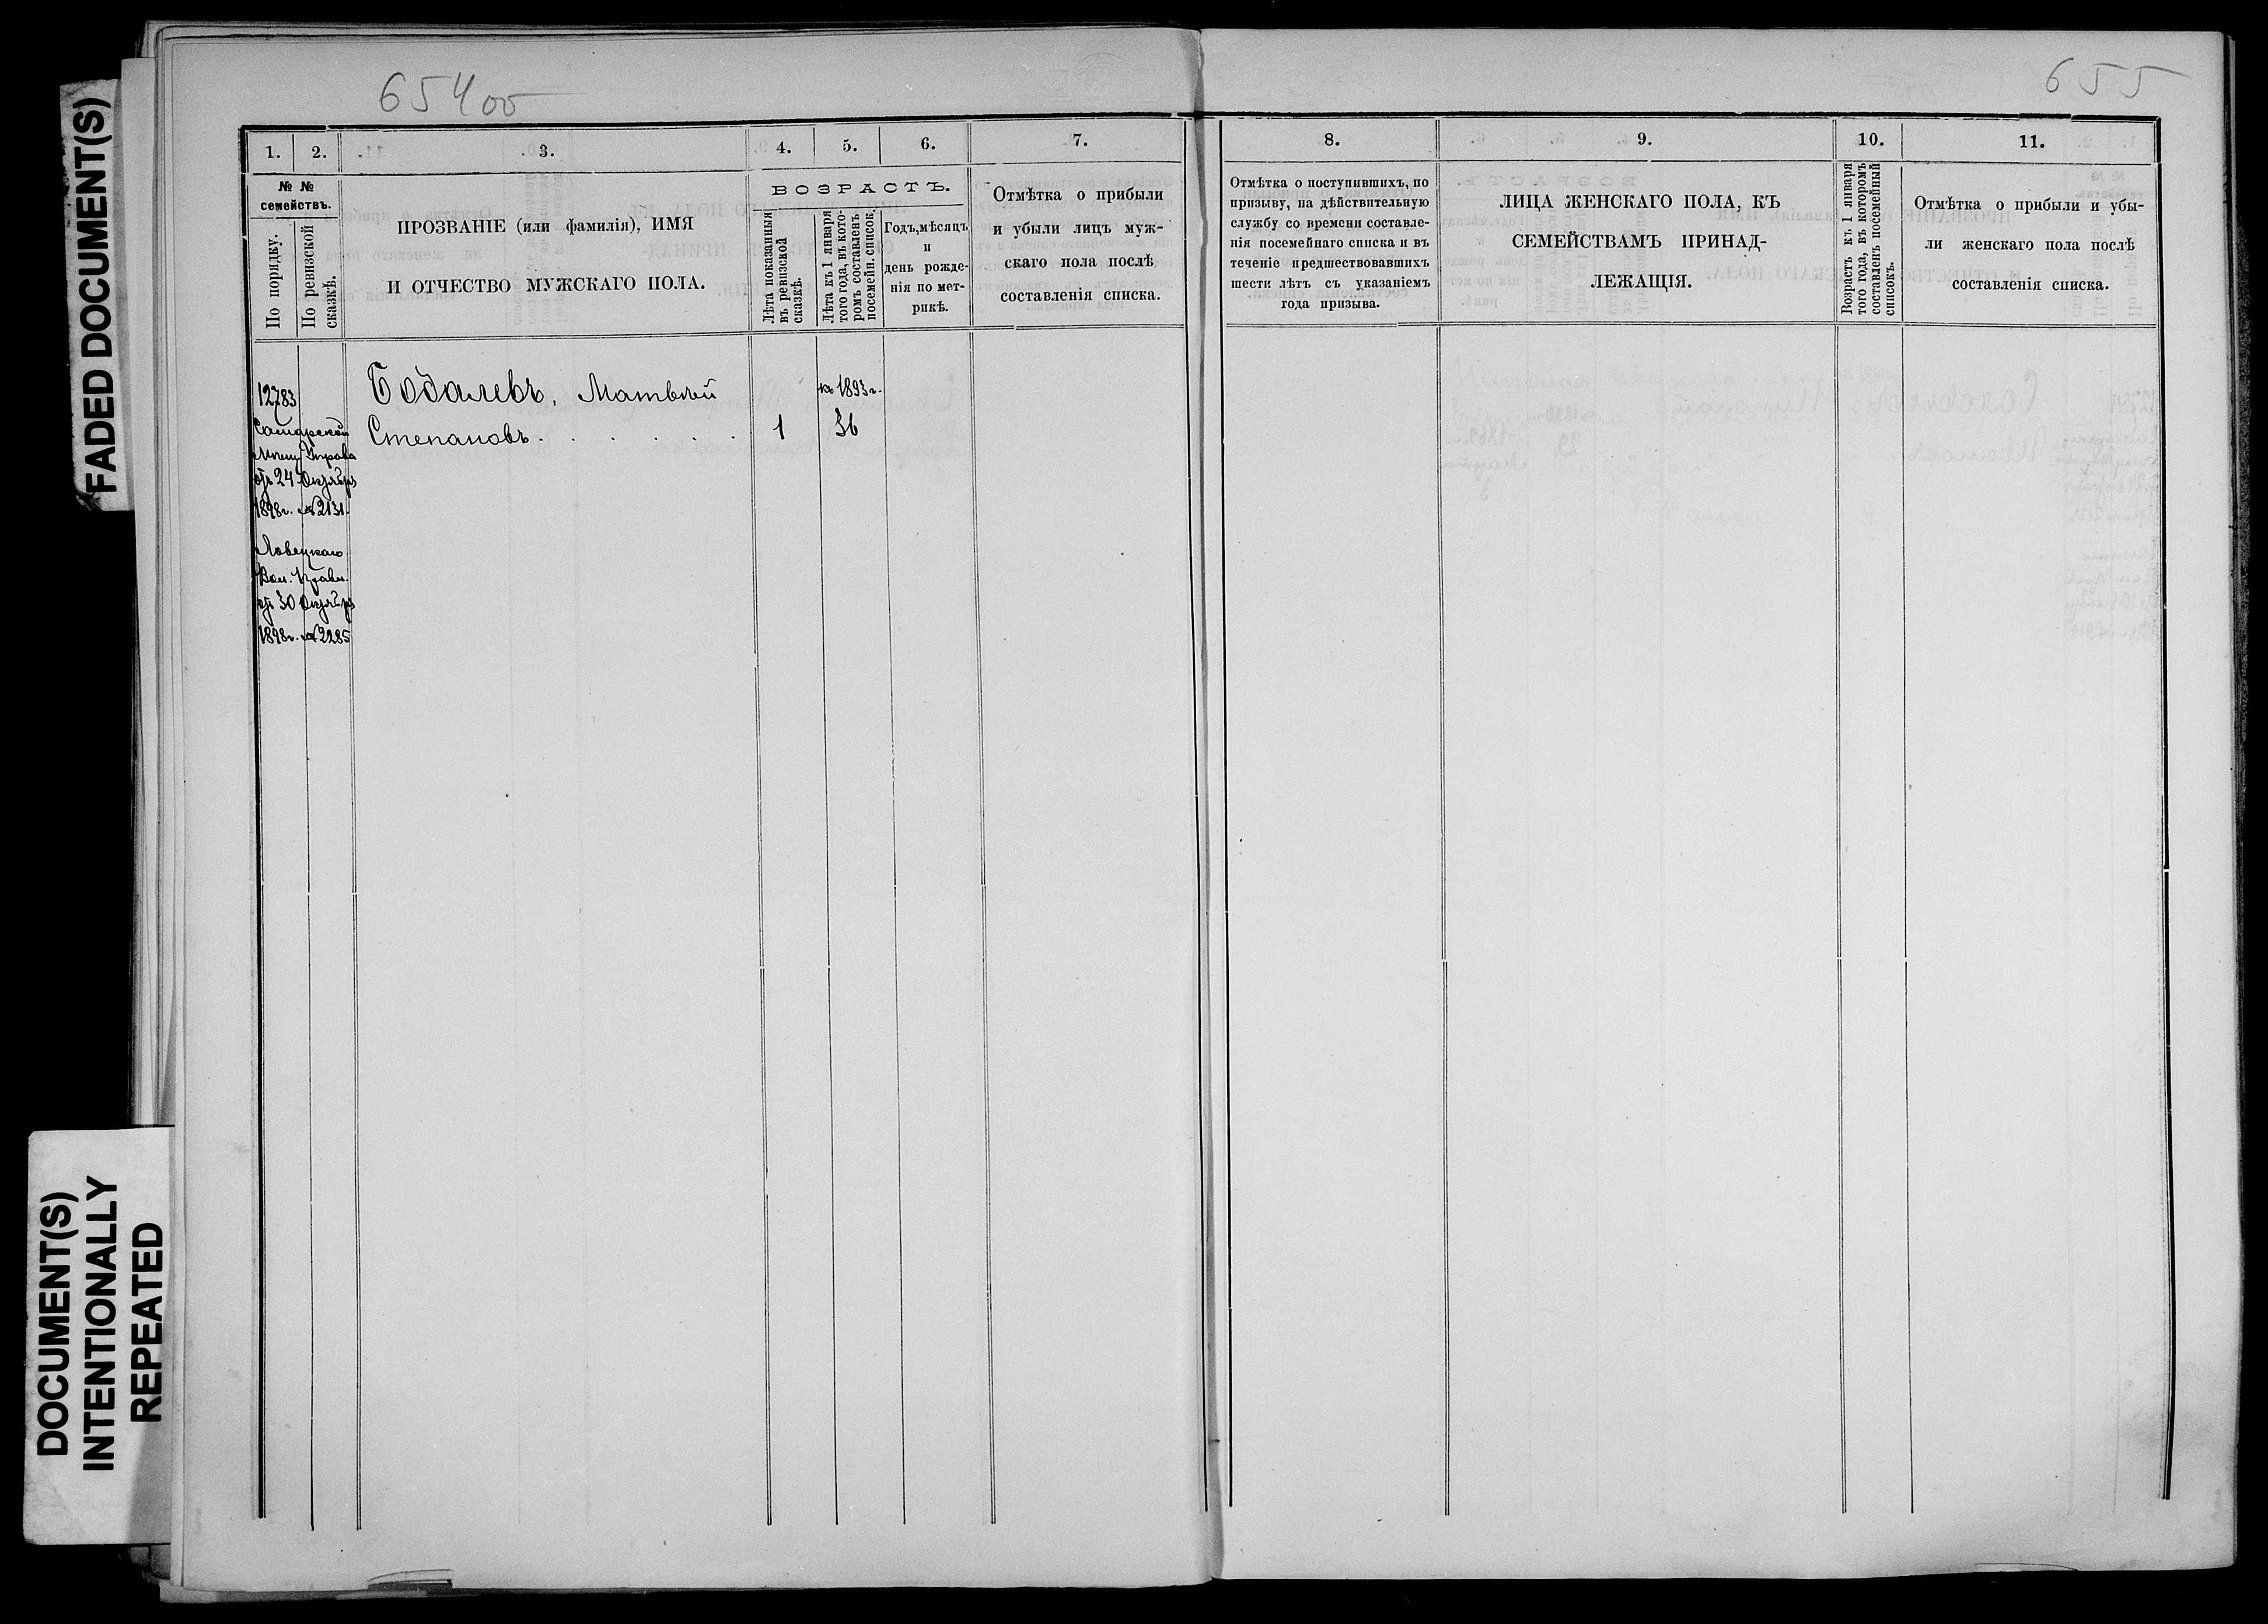 FADED DOCUMENT(S)
DOCUMENT(S)
INTENTIONALLY
REPEATED
654 об
655
1. 2. 3. 4. 5. 6. 7.
№ №
семействъ.
По порядку.
По ревизской
сказкѣ.
ПРОЗВАНІЕ (или фамилія), ИМЯ
И ОТЧЕСТВО МУЖСКАГО ПОЛА.
ВОЗРАСТЪ.
Лѣта показанныя
въ ревизской
сказкѣ.
Лѣта къ 1 января
того года, въ кото-
ромъ составленъ
посемейн. список.
Годъ, мѣсяцъ
и
день рожде-
нія по мет-
рикѣ.
Отмѣтка о прибыли
и убыли лицъ муж-
скаго пола послѣ
составленія списка.
12783
Самарской
Мѣщ. Управы
отъ 24 Октября
1898 г. № 2131.
Вол. Правл.
отъ 30 Октября
1898 г. № 2285
Бодалевъ, Матвѣй
Степановъ . . . . . .
1
къ 1893 г.
36
8. 9. 10. 11.
Отмѣтка о поступившихъ, по
призыву, на дѣйствительную
службу со времени составле-
нія посемейнаго списка и въ
теченіе предшествовавшихъ
шести лѣтъ съ указаніемъ
года призыва.
ЛИЦА ЖЕНСКАГО ПОЛА, КЪ
СЕМЕЙСТВАМЪ ПРИНАД-
ЛЕЖАЩІЯ.
Возрастъ къ 1 января
того года, въ которомъ
составленъ посемейный
списокъ.
Отмѣтка о прибыли и убы-
ли женскаго пола послѣ
составленія списка.